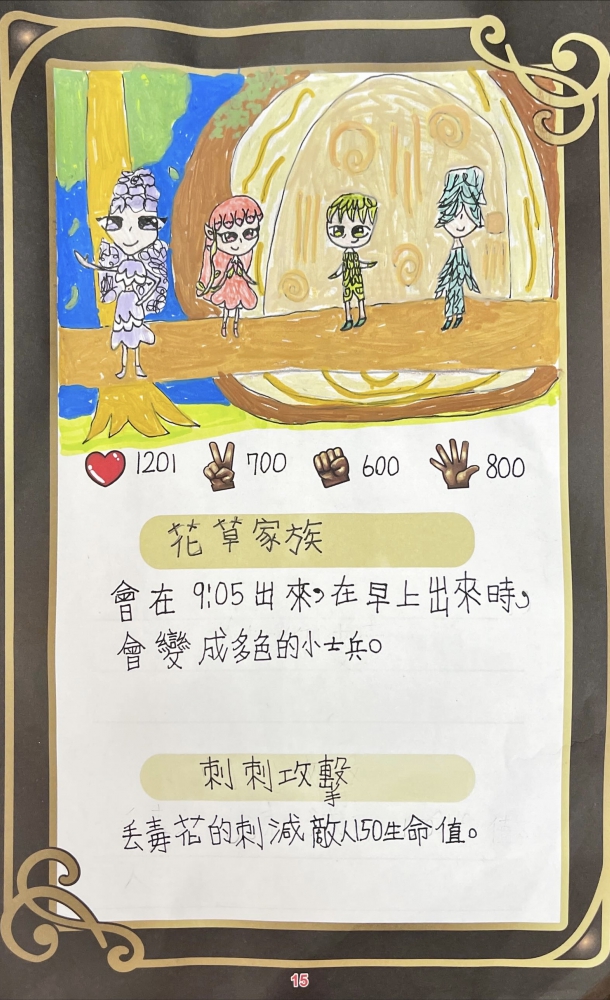 1201 700 600 800
花草家族
會在9:05出來,在早上出來時,
會變成多色的小士兵。
刺刺攻擊
丟毒花的刺減敵人150生命值。
15